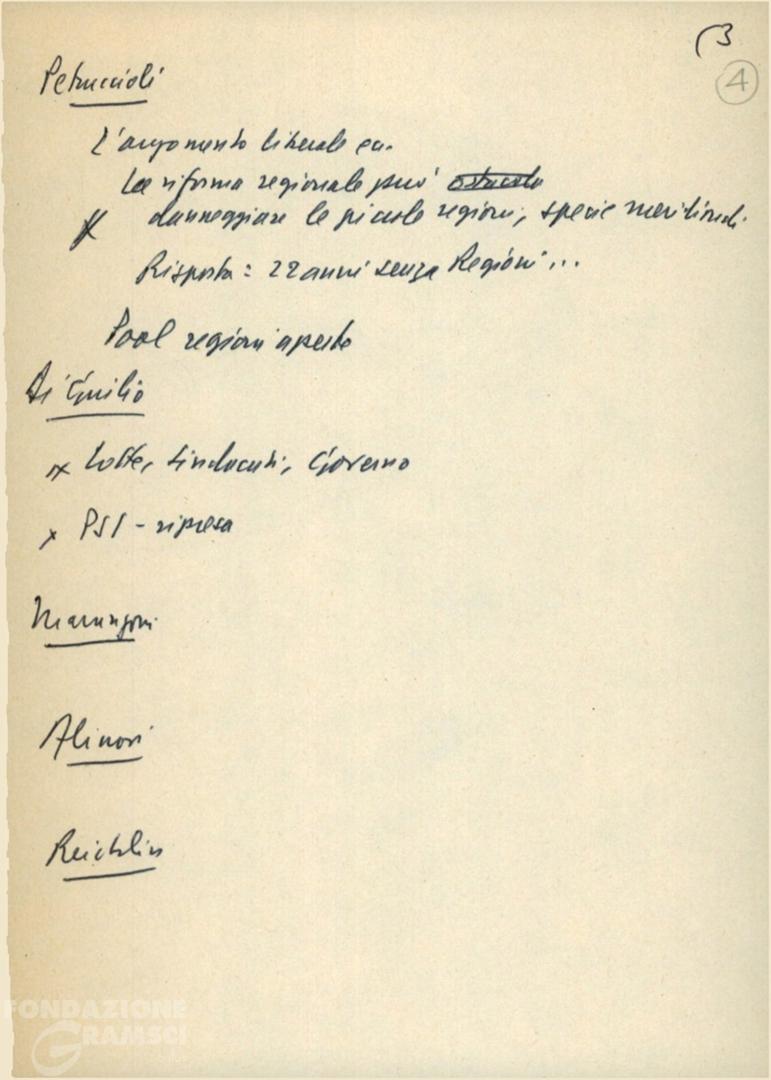 (3
4
Petruccioli
L'argomento liberale
La riforma regionale può ostacola
danneggiare le piccole regioni, specie meridionali.
Risposta: 22 anni senza Regioni...
Pool regioni aperto
Di Giulio
x Lotte, sindacati, Governo
x PSI - ripresa
Marangoni
Alinovi
Reichlin
FONDAZIONE
GRAMSCI